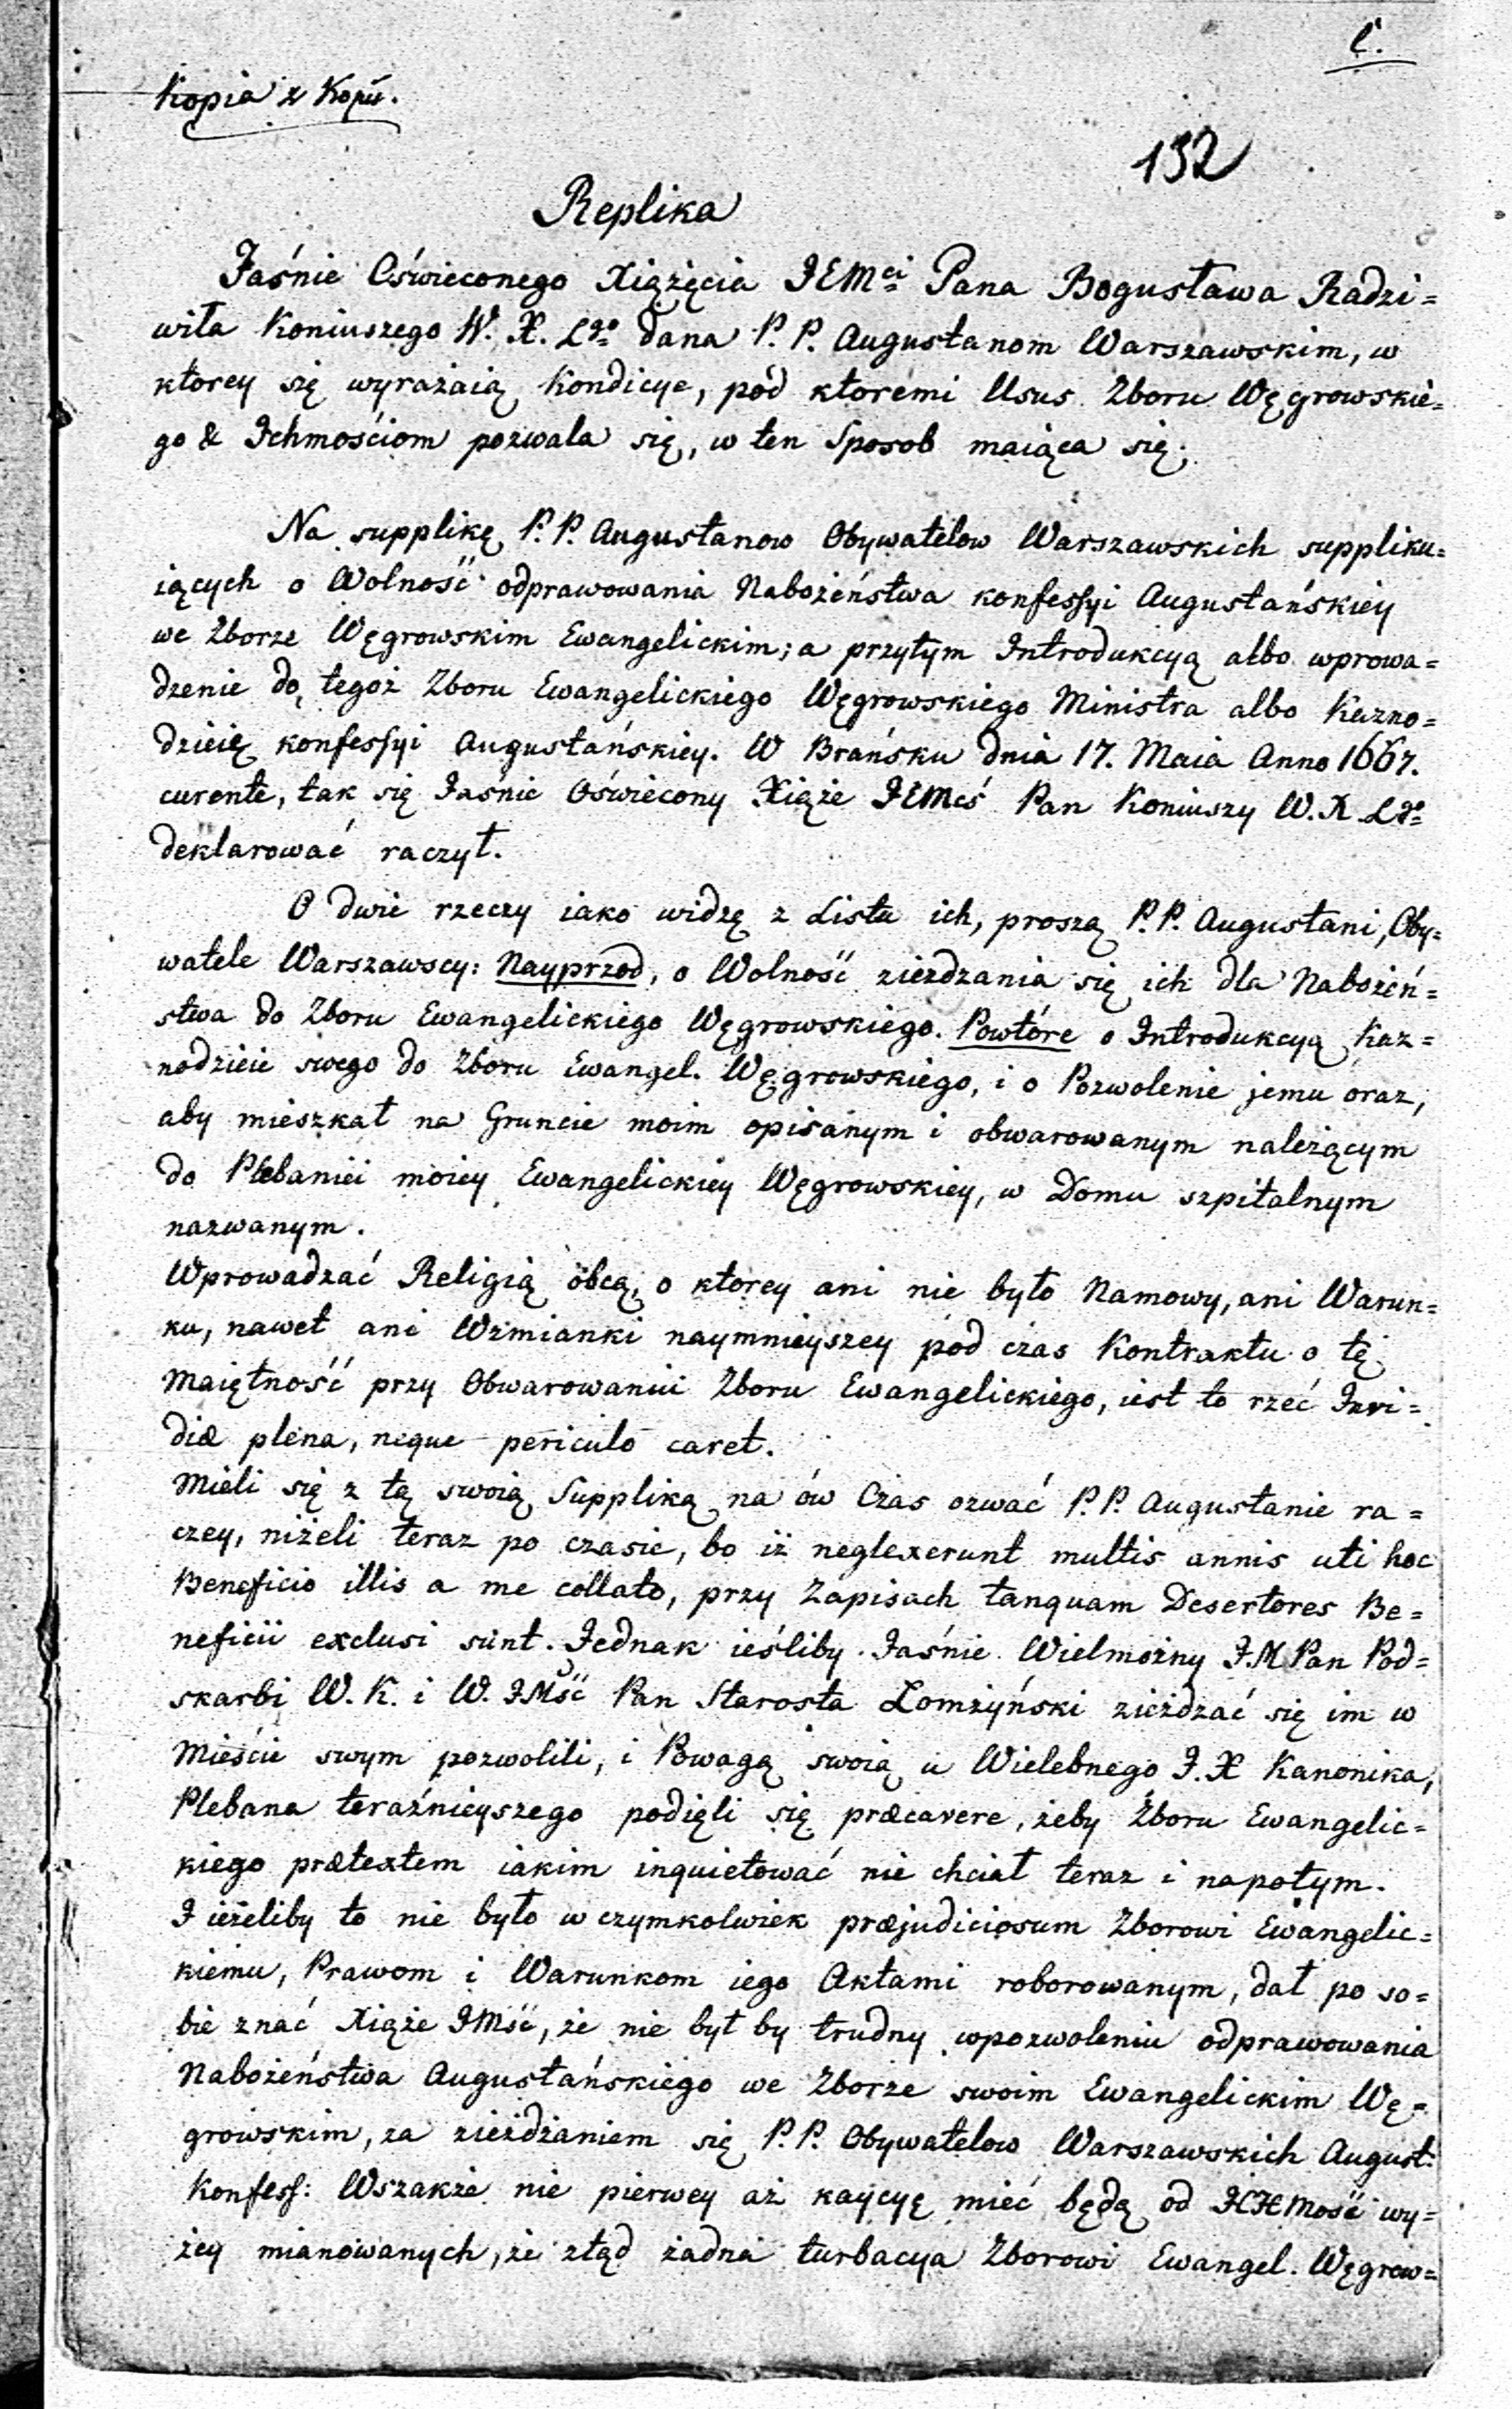 C.
Kopia z Kopii.
192
Replika
Jaśnie Oświeconego Xiążęcia JEMci Pana Bogusława Radzi=
wiła Koniuszego W. X. Lgo dana P. P. Augustanom Warszawskim, w
ktorey się wyrażaią Kondicye, pod ktoremi Usus Zboru Węgrowskie=
go & Ichmościom pozwala się, w ten Sposob maiąca się.
Na supplikę P. P. Augustanow Obywatelow Warszawskich suppliku=
iących o Wolność odprawowania Nabożeństwa konfessyi Augustańskiey
we Zborze Węgrowskim Ewangelickim; a przytym Introdukcyą albo wprowa=
dzenie do tegoż Zboru Ewangelickiego Węgrowskiego Ministra albo Kazno=
dzieię konfessyi Augustańskiey. W Brańsku dnia 17. Maia Anno 1667.
curente, tak się Jaśnie Oświecony Xiąże JEMcś Pan Koniuszy W. X. Lgo
deklarować raczył.
O dwie rzeczy iako widzę z Listu ich, proszą P. P. Augustani, Oby=
watele Warszawscy: Nayprzod, o Wolność zieżdzania się ich dla Nabożeń=
stwa do Zboru Ewangelickiego Węgrowskiego. Powtóre o Introdukcyą Kaz=
nodzieie swego do Zboru Ewangel. Węgrowskiego, i o Pozwolenie jemu oraz,
aby mieszkał na Gruncie moim opisanym i obwarowanym należącym
do Plebaniei moiey Ewangelickiey Węgrowskiey, w Domu szpitalnym
nazwanym.
Wprowadzać Religią obcą, o ktorey ani nie było Namowy, ani Warun=
ku, nawet ani Wzmianki naymnieyszey pod czas Kontraktu o tę
Maiętność przy Obwarowaniu Zboru Ewangelickiego, iest to rzeć Invi=
diæ plena, neque periculo caret.
Mieli się z tą swoią Suppliką na ów Czas ozwać P. P. Augustanie ra=
czey, niżeli teraz po czasie, bo iż neglexerunt multis annis uti hoc
Beneficio illis a me collato, przy Zapisach tanquam Desertores Be=
neficii exclusi sunt. Jednak ieśliby Jaśnie Wielmożny J. M Pan Pod=
skarbi W. K. i W. JMść Pan Starosta Łomżyński zieżdzać się im w
Mieście swym pozwolili, i Powagą swoią u Wielebnego J. X Kanonika,
Plebana teraźnieyszego podięli się præcavere, żeby Zboru Ewangelic=
kiego prætextem iakim inquietować nie chciał teraz i napotym.
I ieżeliby to nie było w czymkolwiek præjudiciosum Zborowi Ewangelic=
kiemu, Prawom i Warunkom iego Aktami roborowanym, dał po so=
bie znać Xiąże JMść, że nie był by trudny wpozwoleniu odprawowania
Nabożeństwa Augustańskiego we Zborze swoim Ewangelickim Wę=
growskim, za zieżdżaniem się P. P. Obywatelow Warszawskich August:
Konfess: Wszakże nie pierwey aż kaycyę mieć będą od IchMość wy=
żey mianowanych, że ztąd żadna turbacya Zborowi Ewangel. Węgrow=